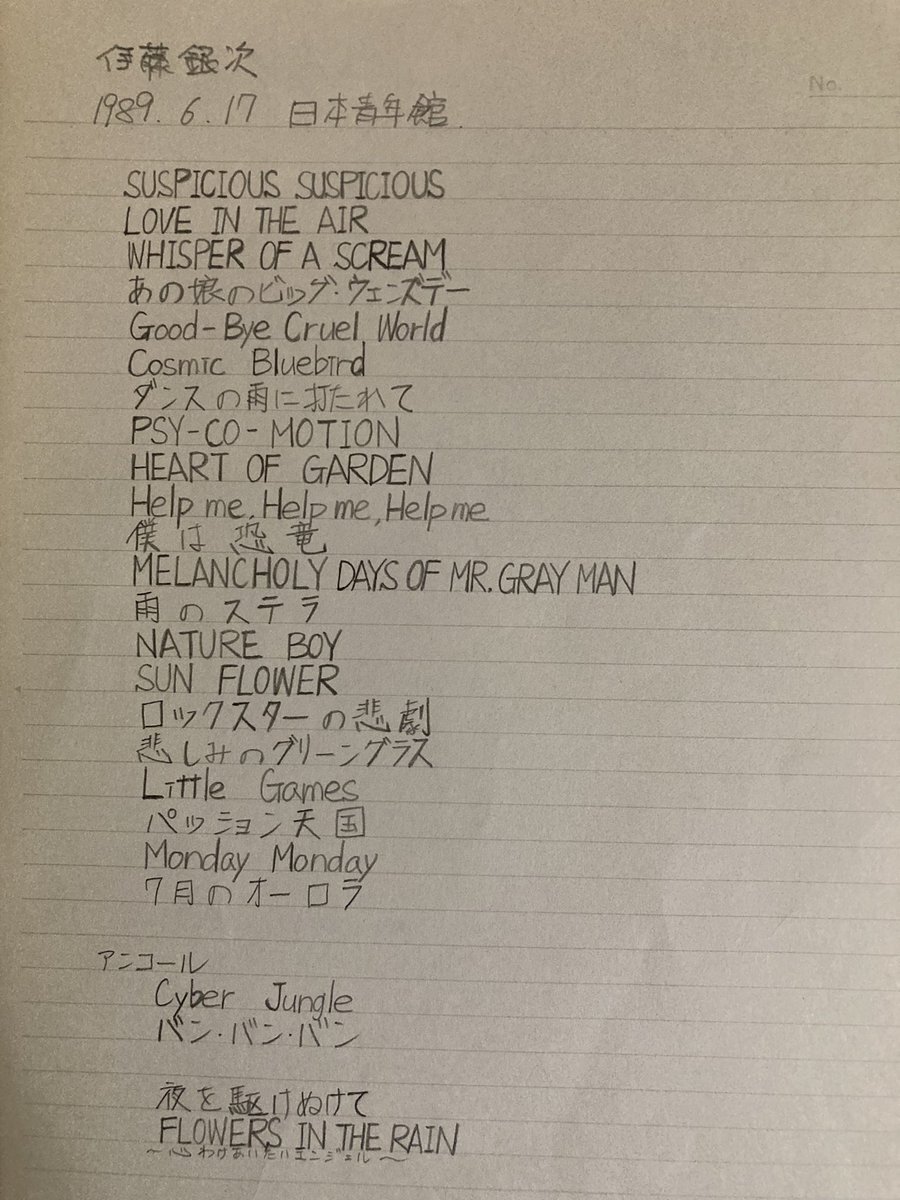 No.
伊藤銀次
1989. 6. 17 日本青年館.
SUSPICIOUS SUSPICIOUS
LOVE IN THE AIR
WHISPER OF A SCREAM
あの娘のビッグ・ウェンズデー
Good-Bye Cruel World
Cosmic Bluebird
ダンスの雨に打たれて
PSY-CO-MOTION
HEART OF GARDEN
Help me, Help me, Help me
僕は恐竜
MELANCHOLY DAYS OF MR. GRAY MAN
雨のステラ
NATURE BOY
SUN FLOWER
ロックスターの悲劇
悲しみのグリーングラス
Little Games
パッション天国
Monday Monday
7月のオーロラ
アンコール
Cyber Jungle
バン・バン・バン
夜を駆けぬけて
FLOWERS IN THE RAIN
〜心わけあいたいエンジェル〜